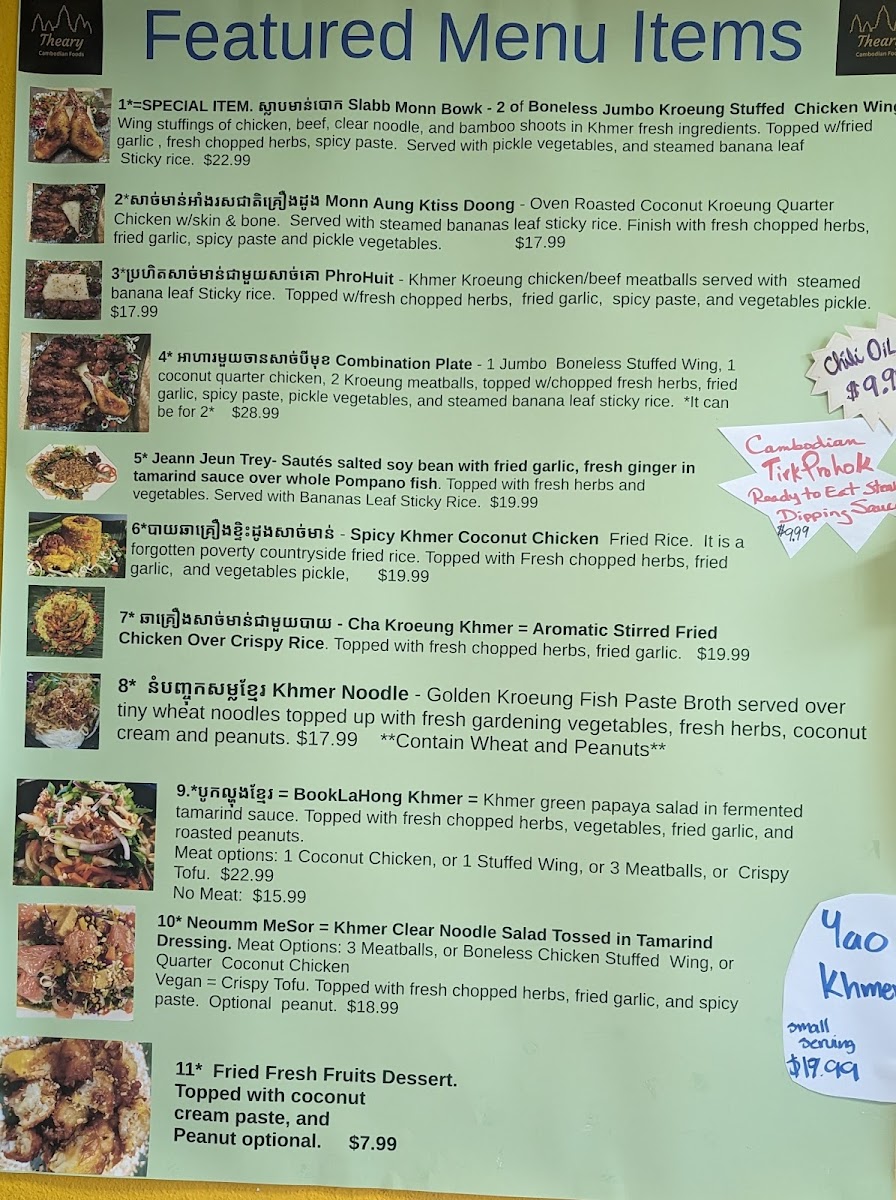 Theary
Cambodian Foods
Featured Menu Items
1*=SPECIAL ITEM. ស្លាបមាន់បោក Slabb Monn Bowk - 2 of Boneless Jumbo Kroeung Stuffed Chicken
Wing stuffings of chicken, beef, clear noodle, and bamboo shoots in Khmer fresh ingredients. Topped w/fried
garlic , fresh chopped herbs, spicy paste. Served with pickle vegetables, and steamed banana leaf
Sticky rice. $22.99
2*សាច់មាន់អាំងរសជាតិគ្រឿងដូង Monn Aung Ktiss Doong - Oven Roasted Coconut Kroeung Quarter
Chicken w/skin & bone. Served with steamed bananas leaf sticky rice. Finish with fresh chopped herbs,
fried garlic, spicy paste and pickle vegetables. $17.99
3*ប្រហិតសាច់មាន់ជាមួយសាច់គោ PhroHuit - Khmer Kroeung chicken/beef meatballs served with steamed
banana leaf Sticky rice. Topped w/fresh chopped herbs, fried garlic, spicy paste, and vegetables pickle.
$17.99
4* អាហារមួយចានសាច់បីមុខ Combination Plate - 1 Jumbo Boneless Stuffed Wing, 1
coconut quarter chicken, 2 Kroeung meatballs, topped w/chopped fresh herbs, fried
garlic, spicy paste, pickle vegetables, and steamed banana leaf sticky rice. *It can
be for 2* $28.99
Chili Oil
5* Jeann Jeun Trey- Sautés salted soy bean with fried garlic, fresh ginger in
tamarind sauce over whole Pompano fish. Topped with fresh herbs and
vegetables. Served with Bananas Leaf Sticky Rice. $19.99
Cambodian
TirkProhok
Ready to Eat
Dipping
$9.99
6*បាយឆាគ្រឿងខ្ទិះដូងសាច់មាន់ - Spicy Khmer Coconut Chicken Fried Rice. It is a
forgotten poverty countryside fried rice. Topped with Fresh chopped herbs, fried
garlic, and vegetables pickle, $19.99
7* ឆាគ្រឿងសាច់មាន់ជាមួយបាយ - Cha Kroeung Khmer = Aromatic Stirred Fried
Chicken Over Crispy Rice. Topped with fresh chopped herbs, fried garlic. $19.99
8* នំបញ្ចុកសម្លខ្មែរ Khmer Noodle - Golden Kroeung Fish Paste Broth served over
tiny wheat noodles topped up with fresh gardening vegetables, fresh herbs, coconut
cream and peanuts. $17.99 **Contain Wheat and Peanuts**
9.*បូកល្ហុងខ្មែរ = BookLaHong Khmer = Khmer green papaya salad in fermented
tamarind sauce. Topped with fresh chopped herbs, vegetables, fried garlic, and
roasted peanuts.
Meat options: 1 Coconut Chicken, or 1 Stuffed Wing, or 3 Meatballs, or Crispy
Tofu. $22.99
No Meat: $15.99
10* Neoumm MeSor = Khmer Clear Noodle Salad Tossed in Tamarind
Dressing. Meat Options: 3 Meatballs, or Boneless Chicken Stuffed Wing, or
Quarter Coconut Chicken
Vegan = Crispy Tofu. Topped with fresh chopped herbs, fried garlic, and spicy
paste. Optional peanut. $18.99
Yao
small
serving
$19.99
11* Fried Fresh Fruits Dessert.
Topped with coconut
cream paste, and
Peanut optional. $7.99